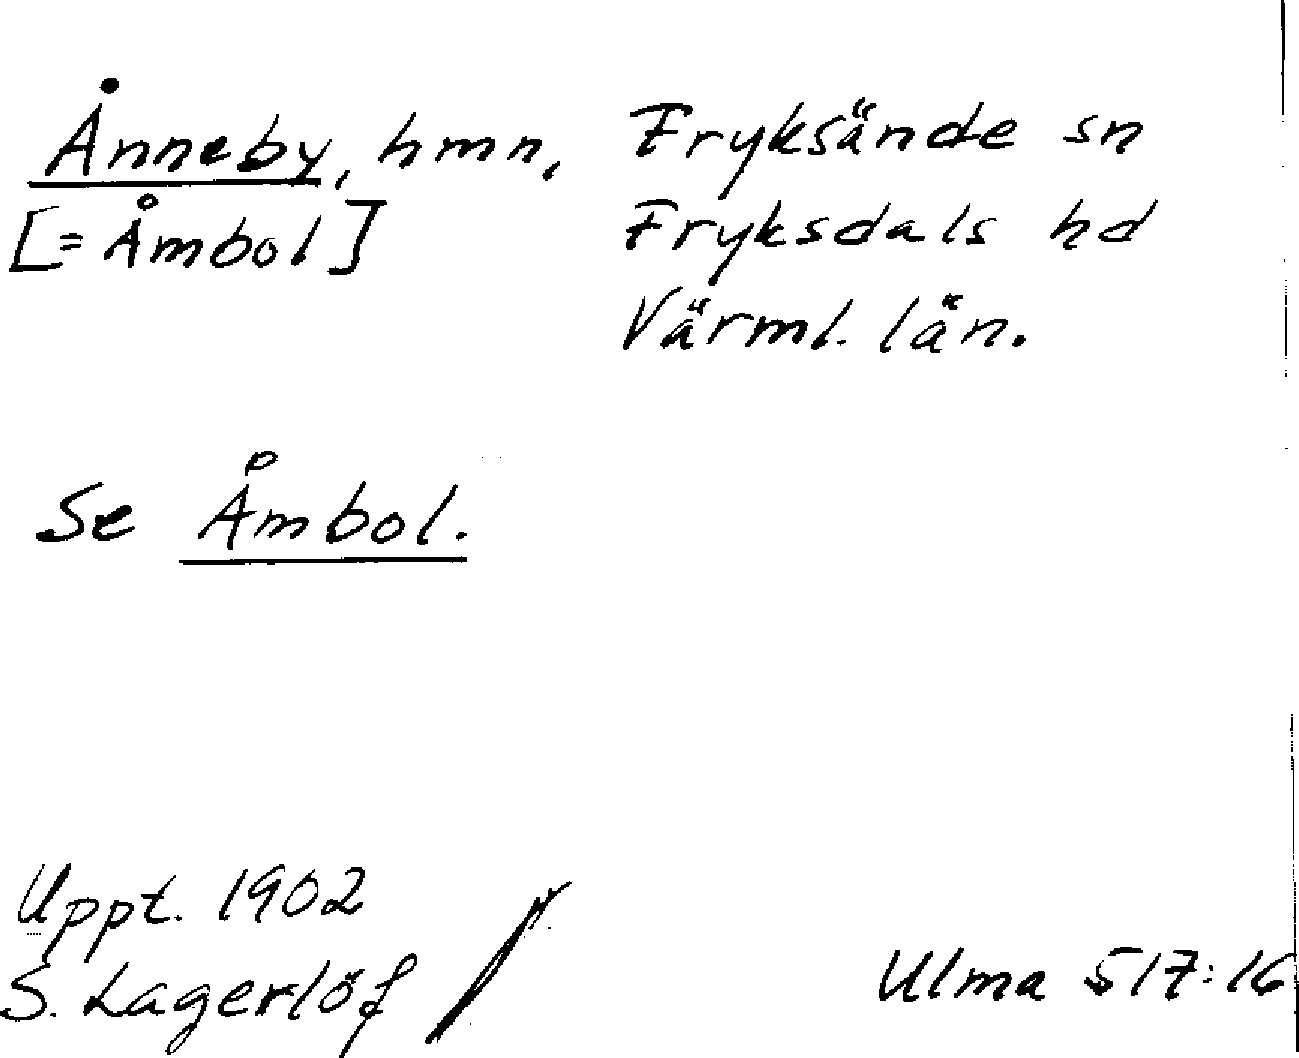 Ånneby, hmn, Fryksände sn
[= Åmbol] Fryksdals hd
Värml. län.
Se Åmbol.
Uppt. 1902
S. Lagerlöf
Ulma 517:16